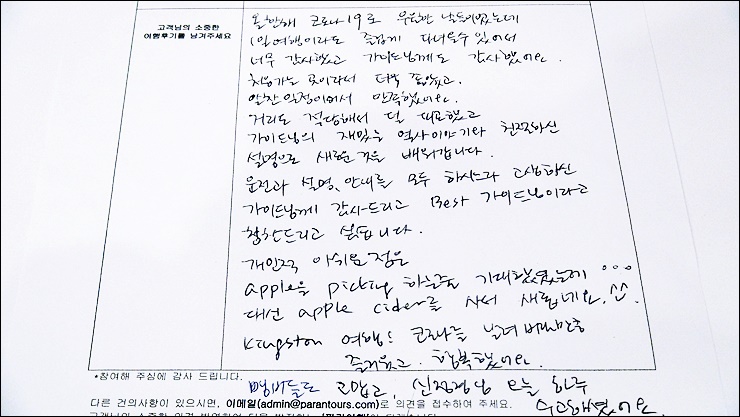 고객님의 소중한
여행후기를 남겨주세요
올한해 코로나19로 우울한 날들이었는데
1일여행이라도 즐겁게 다녀올수 있어서
너무 감사했고 가이드님께도 감사했어요.
처음가는 곳이라서 더욱 좋았고.
알찬 일정이어서 만족했어요.
거리도 적당해서 덜 피곤했고
가이드님의 재밌는 역사이야기와 친절하신
설명으로 새로운것을 배워갑니다.
운전과 설명, 안내를 모두 하시느라 고생하신
가이드님께 감사드리고 Best 가이드님이라고
칭찬드리고 싶습니다.
개인적 아쉬운 점은
apple을 picking 하는줄 기대했었는데 ...
대신 apple cider를 사서 새롭네요. ^^
Kingston 여행! 코로나를 날려버릴만큼
즐거웠고. 행복했어요.
*참여해 주심에 감사 드립니다.
멤버들도 고맙고, 오늘 하루
수고하셨어요
다른 건의사항이 있으시면, 이메일(admin@parantours.com)로 의견을 접수하여 주세요.